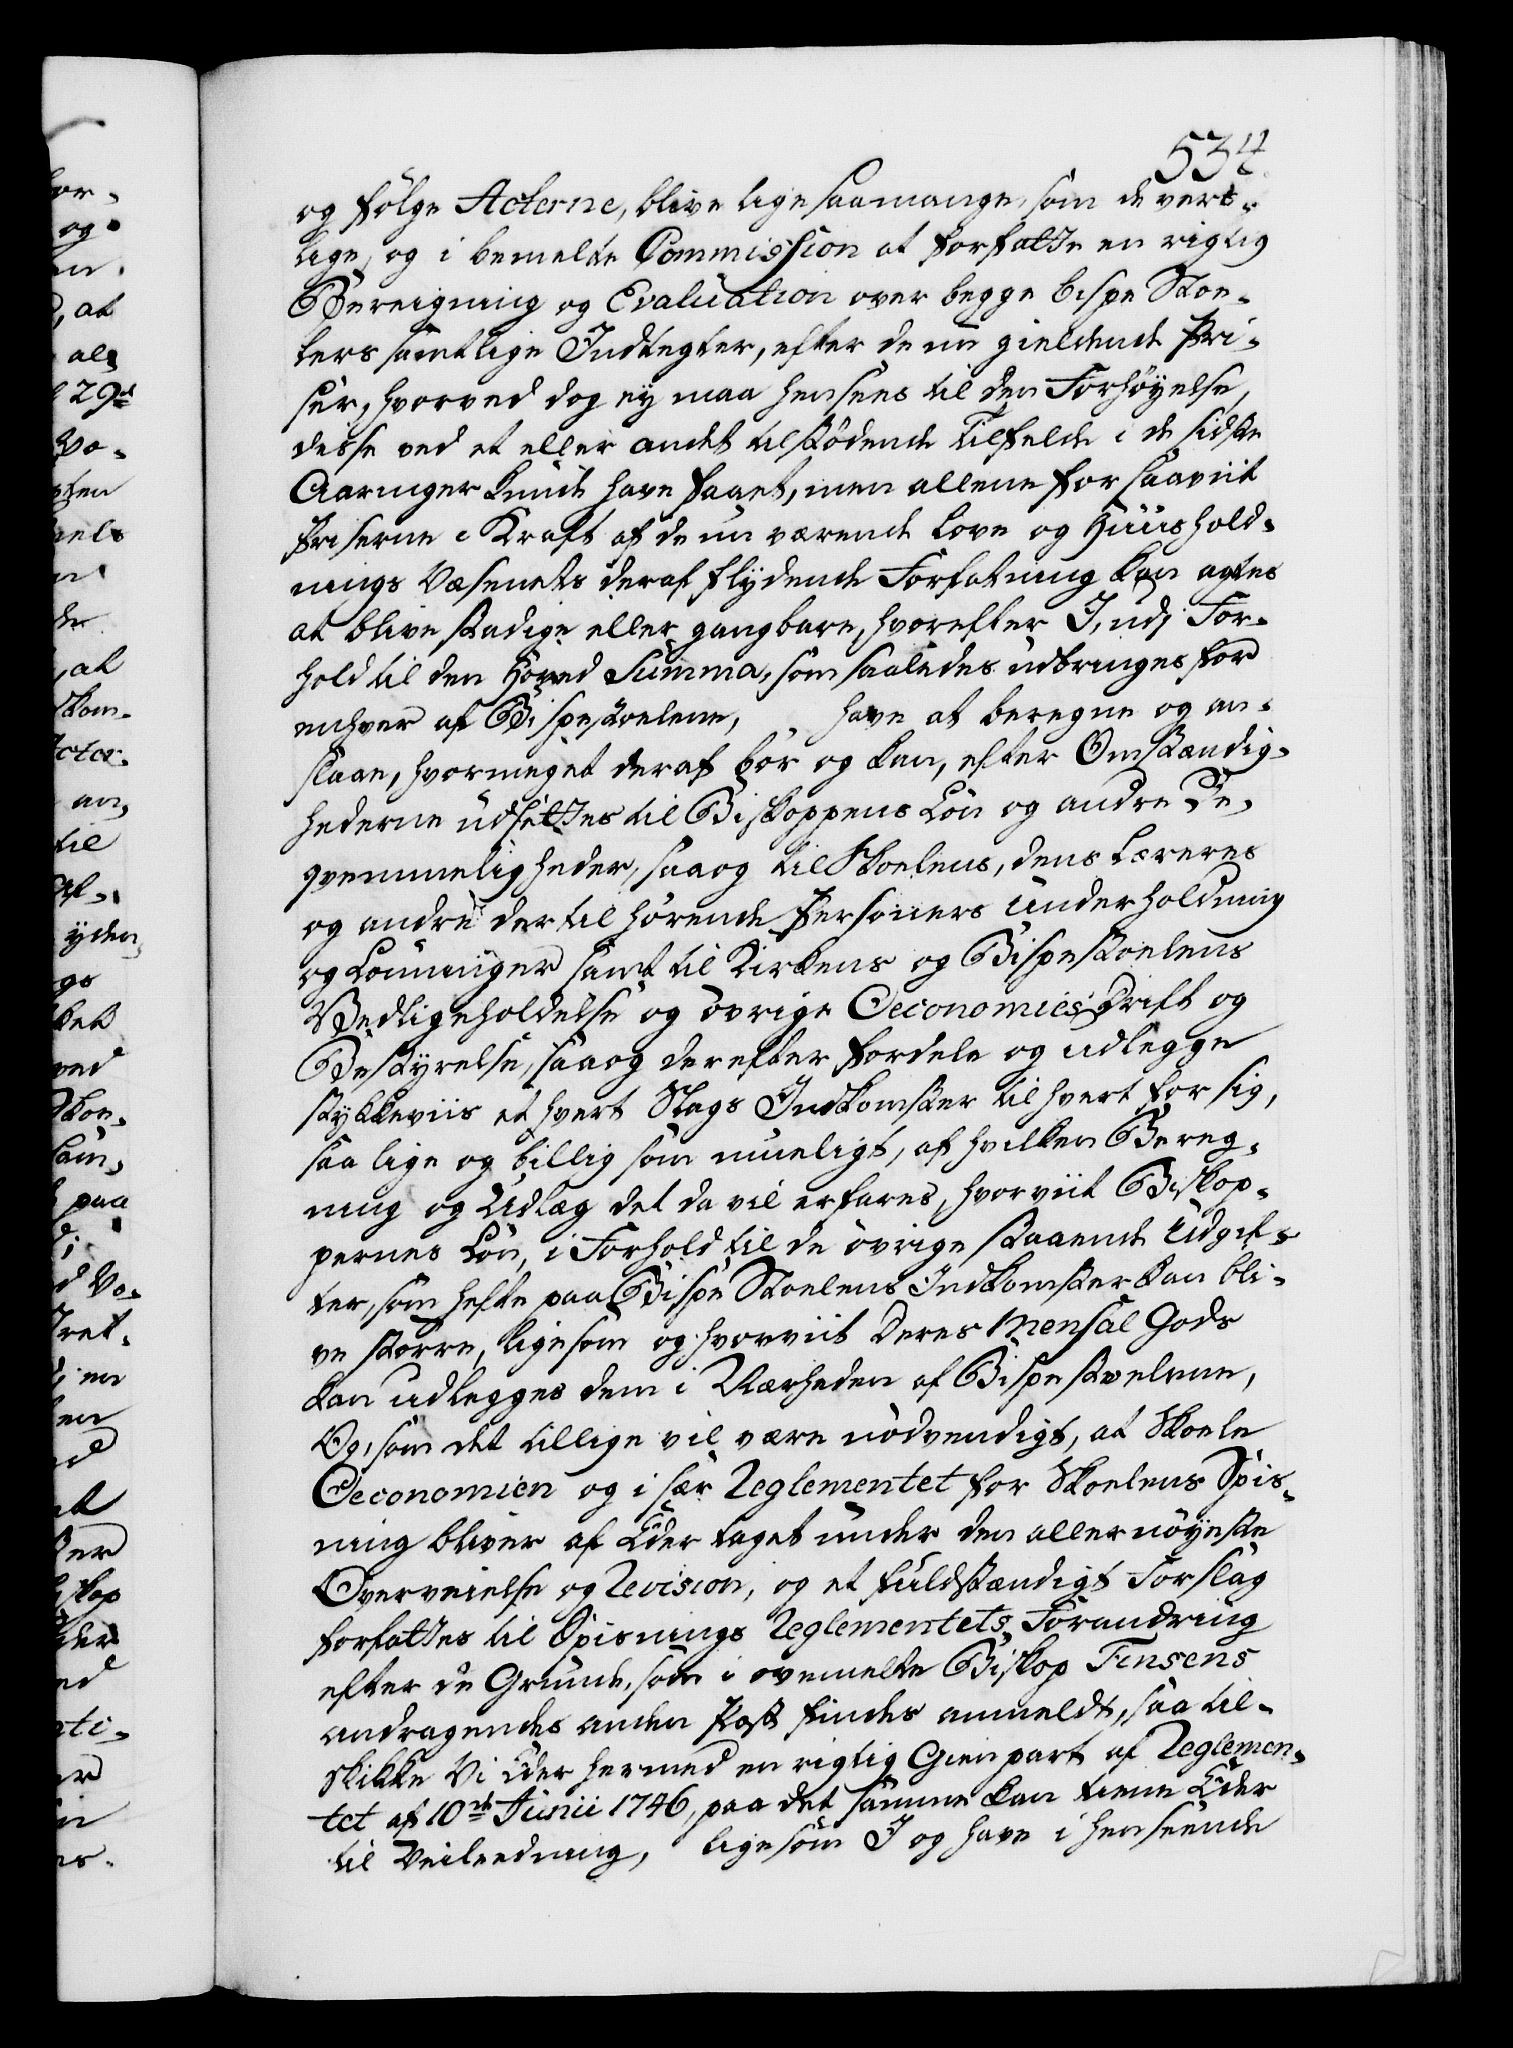 534
og følge Acterne, blive lige saamange, som de verts-
lige, og i bemelte Commission at forfatte en rigtig
Bereigning og Evaluation over begge bispe Stoe-
lers samtlige Indtegter, efter de nu gieldende Pri-
ser, hvorved dog ey maa hensees til den Forhøyelse,
disse ved et eller andet tilstødende Tilfelde i de sidste
Aaringer kunde have faaet, men allene for saaviit
Priserne i Kraft af de nu værende Love og Huushold-
nings Væsenets deraf flydende Forfatning kan agtes
at blive stadige eller gangbare, hvorefter I, udj For-
hold til den Hoved Summa, som saaledes udbringes for
enhver af Bispestoelene, have at beregne og an-
slaae, hvormeget deraf bør og kan, efter Omstændig-
hederne udsættes til Biskoppens Løn og andre Be-
qvemmeligheder, saaog til Skoelens, dens Læreres
og andre dertil hørende Personers Underholdning
og Lønninger samt til Kirkens og Bispestoelens
Vedligeholdelse og øvrige Oeconomies Drift og
Bestyrelse, saaog derefter fordele og udlegge
stykkeviis et hvert Slags Indkomster til hvert for sig,
saa lige og billig som mueligt, af hvilken Bereg-
ning og Udlæg det da vil erfares, hvorviit Biskop-
pernes Løn, i Forhold til de øvrige staaende Udgif-
ter, som hefte paa Bispe Stoelens Indkomster kan bli-
ve større, ligesom og hvorviit deres Mensal Gods
kan udlegges dem i Nærheden af Bispestoelene,
Og, som det tillige vil være nødvendigt, at Skoele
Oeconomien og i sær Reglementet for Skoelens Spis-
ning bliver af Eder taget under den allernøyeste
Overveielse og Revision, og et fuldstændigt Forslag
forfattes til Spisnings Reglementets Forandring
efter de Grunde, som i ovenmelte Biskop Finsens
andragendes anden Post findes anmeldt, saa til-
skikke Vi Eder hermed en rigtig Gienpart af Reglemen-
tet af 10de Junii 1746, paa det samme kan tiene Eder
til Veileedning, ligesom I og have i henseende